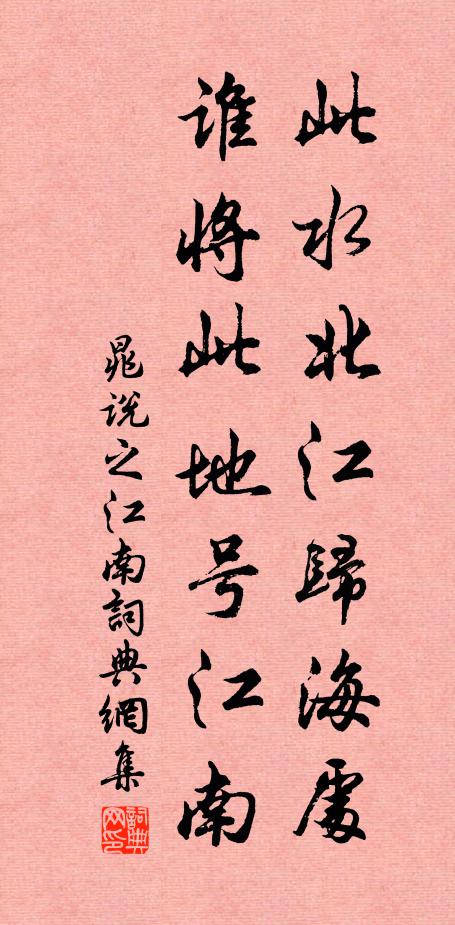 此水北江歸海處
谁将此地号江南
晁说之江南詞典網集
詞典网印